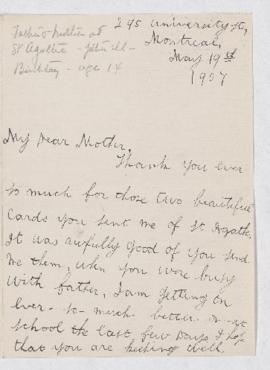 Father & Mother at
St Agathe - John ill -
Birthday - age 14
295 University St,
Montreal,
May 19th
1907
My Dear Mother,
Thank you ever
so much for those two beautiful
Cards you sent me of St Agathe.
It was awfully good of you send
me them, when you were busy
With father, I am getting on
ever - so - much better in at
school the last few Days I hope
that you are keeping well